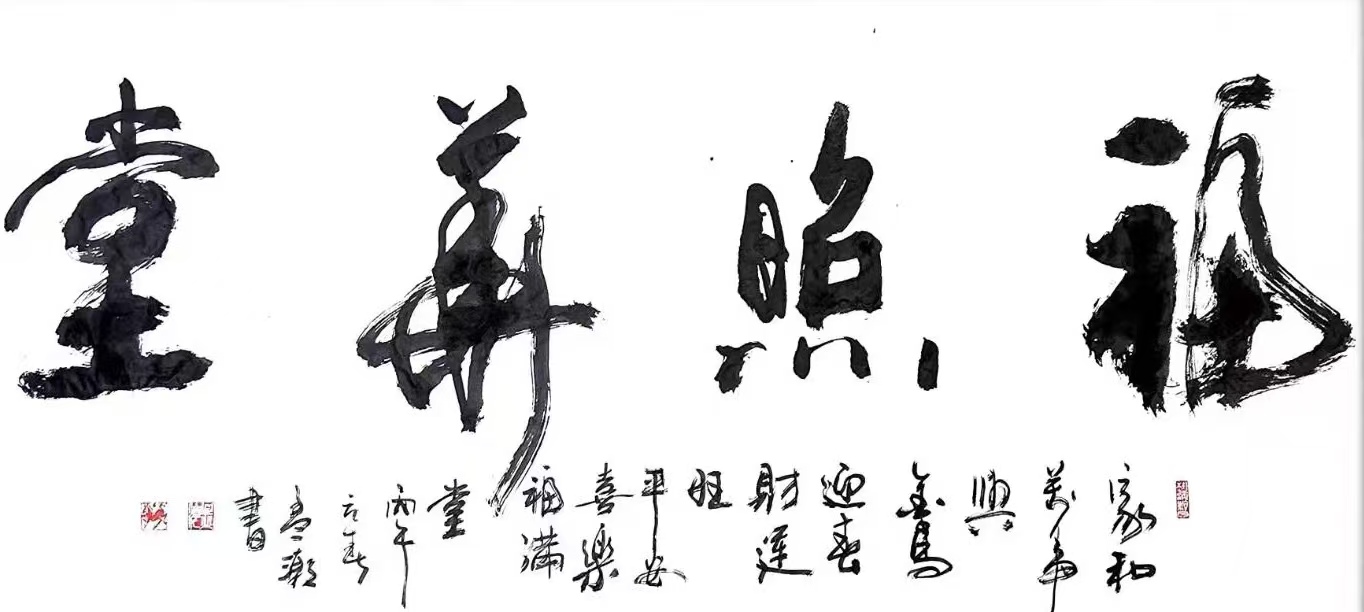 福照華堂
家和
萬事
興
金馬
迎春
財運
旺
平安
喜樂
福滿
堂
丙午
立春
書